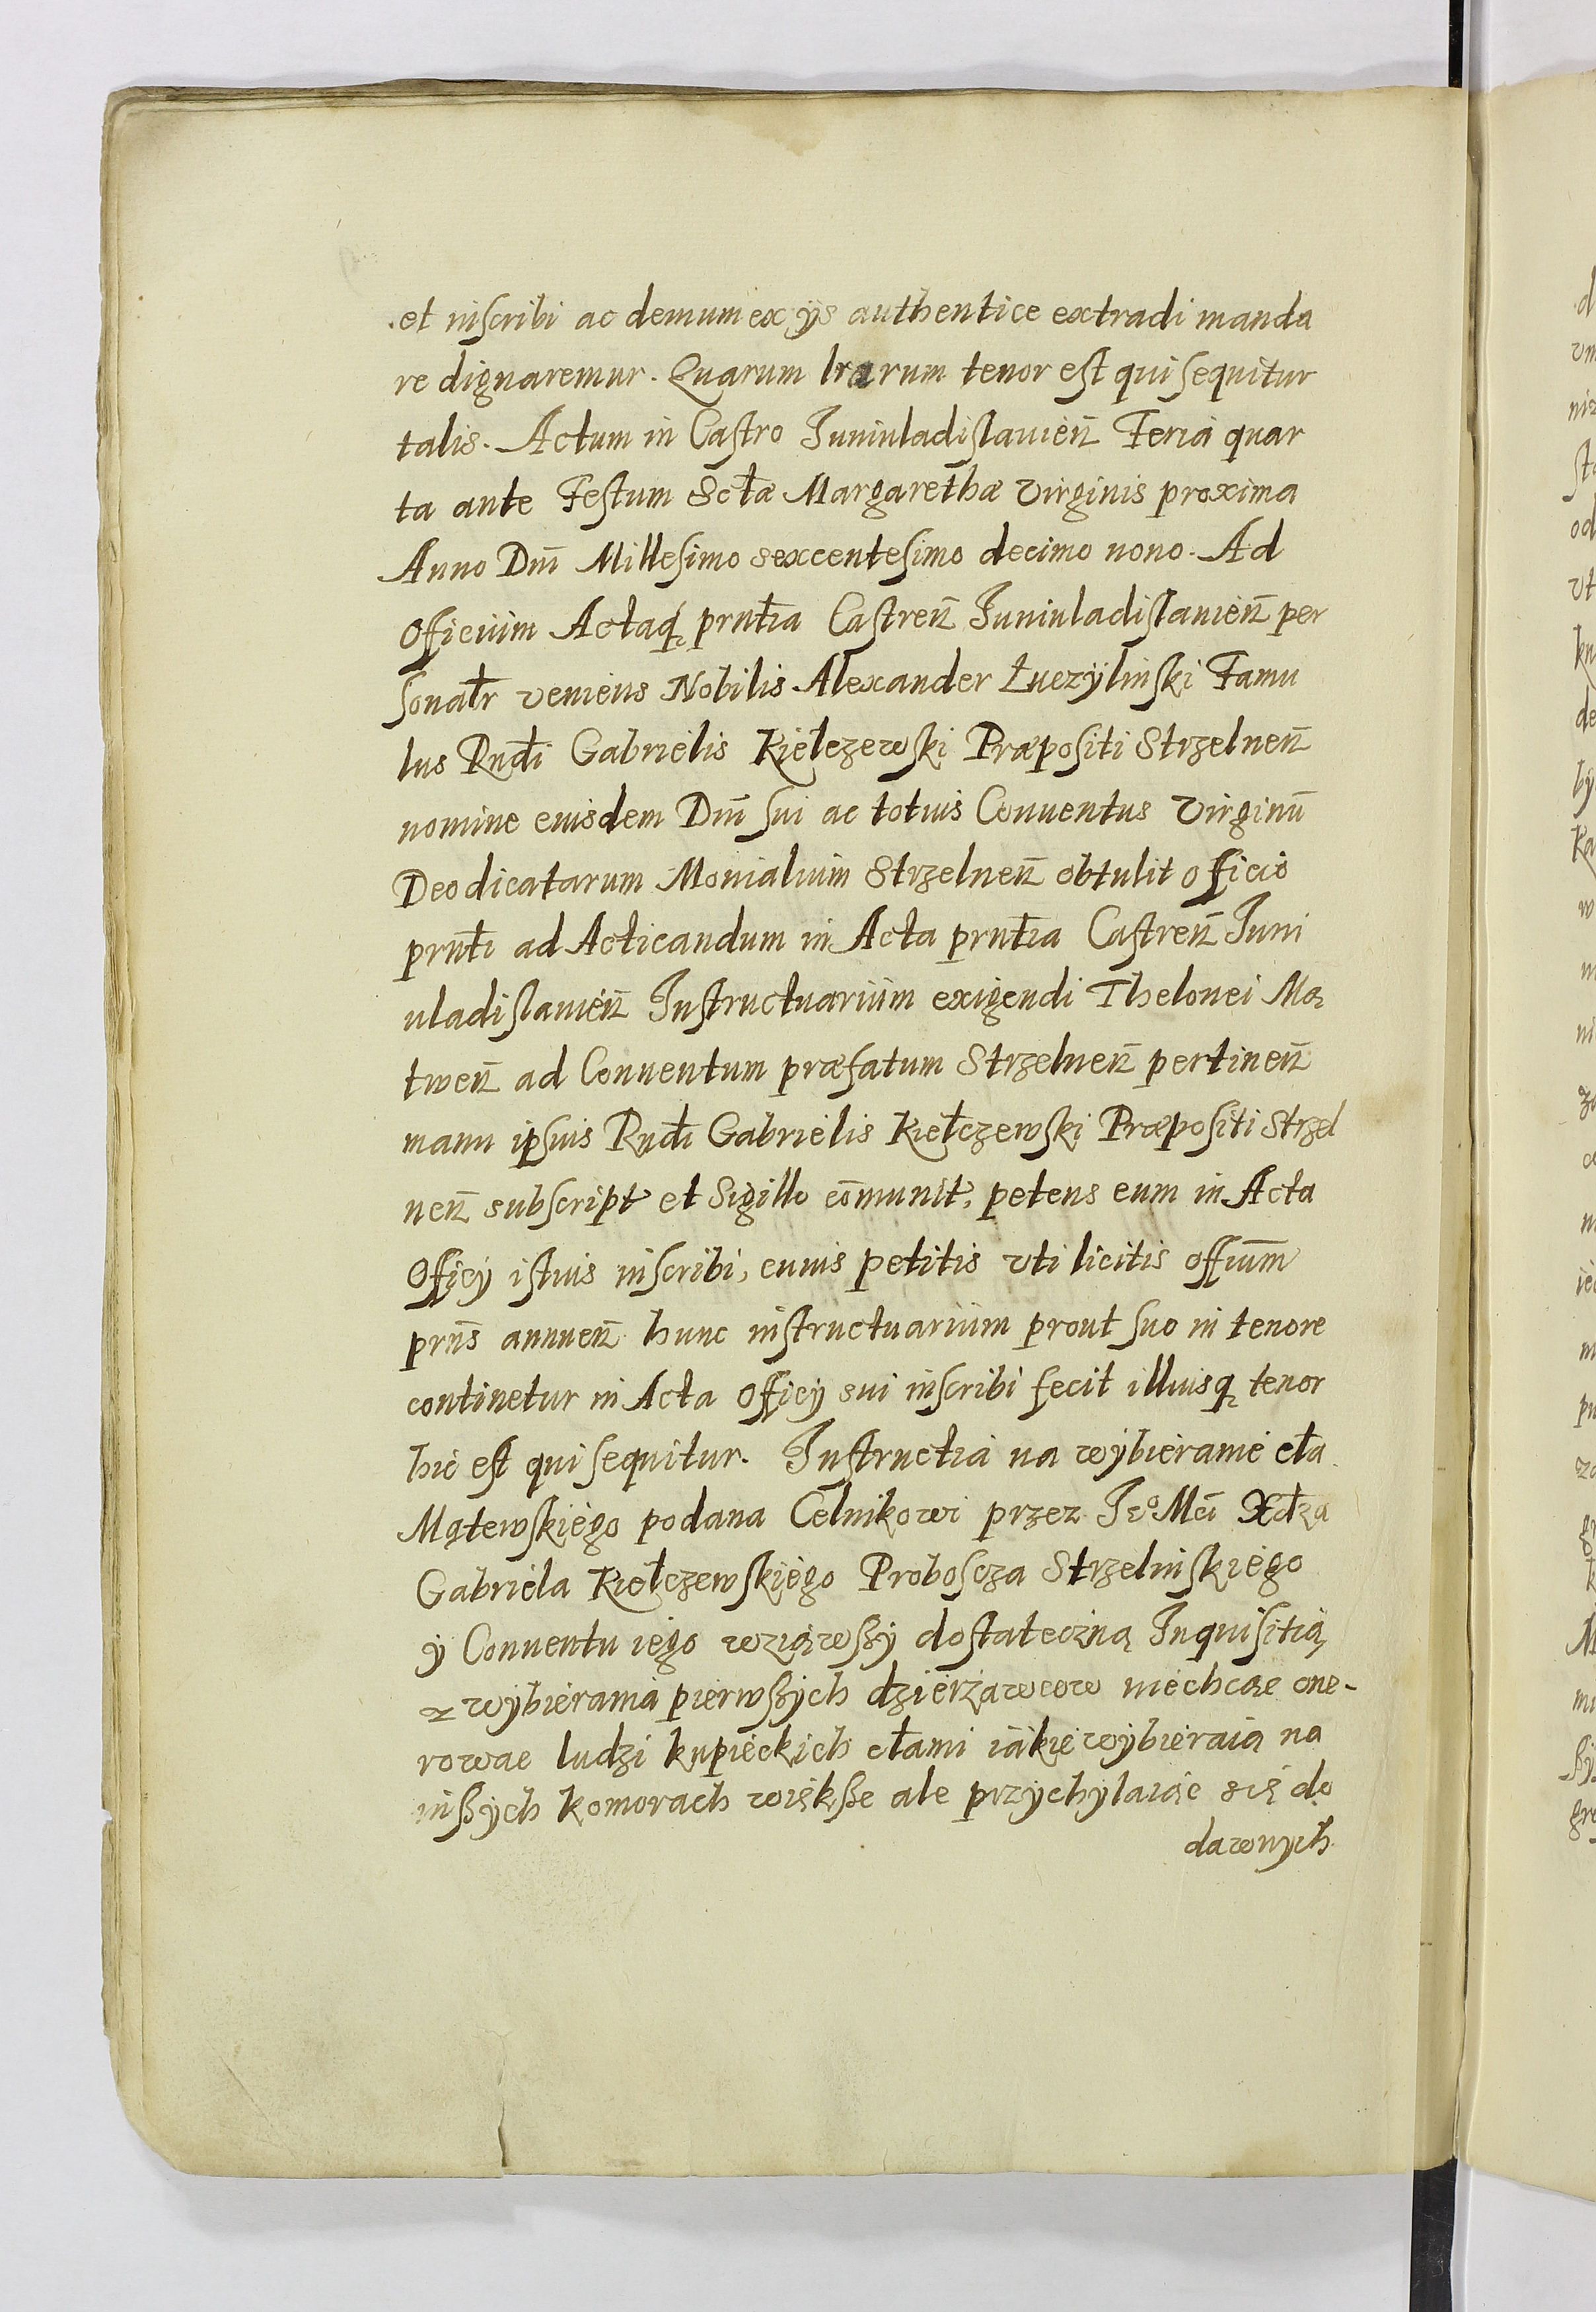 et inscribi ac demum ex ijs authentice extradi manda
re dignaremur. Quarum lrarum tenor est qui sequitur
talis. Actum in Castro Iuniuladislauieñ Feria quar
ta ante Festum Sctæ Margarethæ Virginis proxima
Anno Dni Millesimo sexcentesimo decimo nono. Ad
Officium Actaq prntia Castreñ Iuniuladislauieñ per
sonatr veniens Nobilis Alexander Łuczyliński Famu
lus Rndi Gabrielis Kiełczewski Præpositi Strzelneñ
nomine eiusdem Dni sui ac totius Conuentus Virginū
Deo dicatarum Monialium Strzelneñ obtulit officio
prnti ad Acticandum in Acta prntia Castreñ Iuni
uladislauieñ Instructuarium exigendi Thelonei Mą
tweñ ad Conuentum præfatum Strzelneñ pertineñ
manu ipsius Rndi Gabrielis Kiełczewski Præpositi Strzel
neñ subscript et Sigillo cōmunit, petens eum in Acta
Officij istius inscribi, cuius petitis vti licitis offium
prns annueñ hunc instructuarium prout suo in tenore
continetur in Acta Officij sui inscribi fecit illiusq tenor
hic est qui sequitur. Instructia na wybieranie cła
Mątewskiego podana Celnikowi przez Jeo Mci Xdza
Gabriela Kiełczewskiego Proboscza Strzelinskiego
y Conuentu iego wziąwszy dostateczną Inquisitią
z wybierania pierwszych dzierżawcow niechcąc one-
rować ludzi kupieckich cłami iakie wybieraią na
inszych komorach większe ale przychylaiąc się do
dawnych